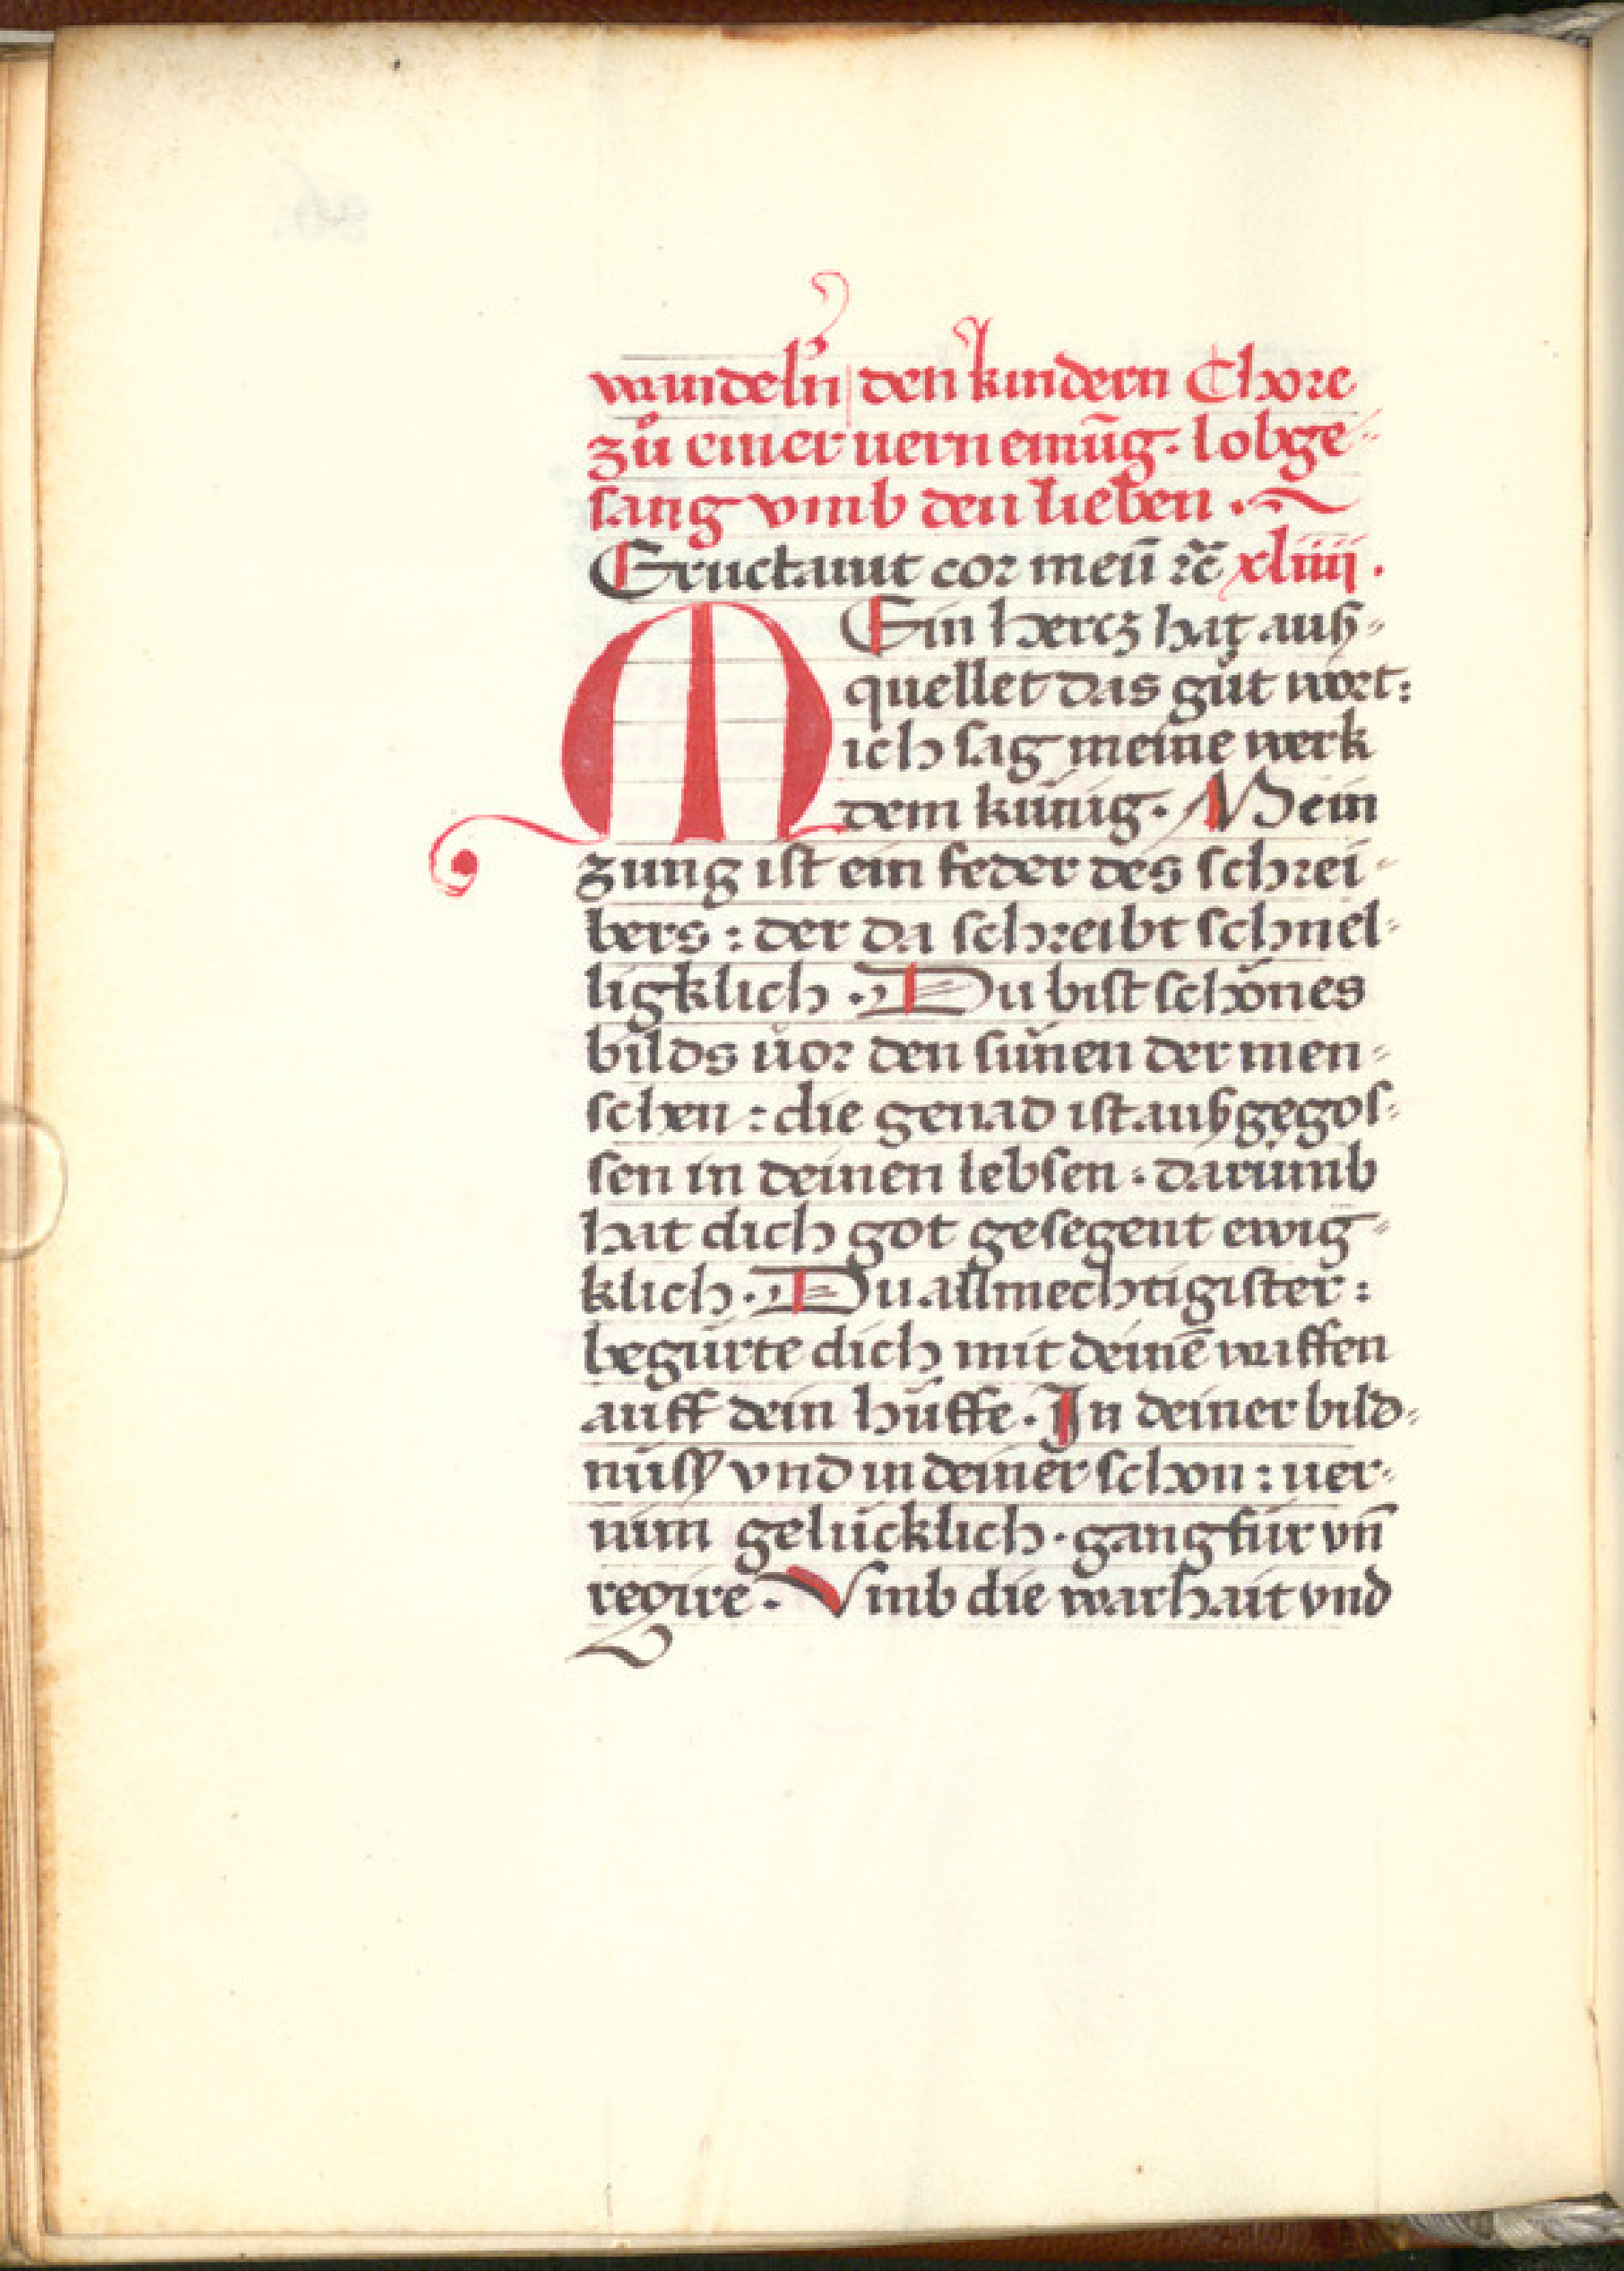 wandelñ den kindern Chore
zů einer vernemūg. lobge⸗
sang vmb den lieben .
Eructauit cor meū ⁊c̄ xliiii .
MEin hercz hat auß⸗
quellet das gůt wort:
ich sag meine werk
dem künig. Mein
zung ist ein feder des schrei⸗
bers : der da schreibt schnel⸗
ligklich . Du bist schönes
bilds vor den sünen der men⸗
schen : die genad ist außgegos⸗
sen in deinen lebsen . darumb
hat dich got gesegent ewig⸗
klich . Du allmechtigister :
begürte dich mit deinē waffen
auff dein hüffe . In deiner bild⸗
nüsß vnd in deiner schon : ver⸗
nim gelücklich . gang für vn̄
regire . Vmb die warhait vnd